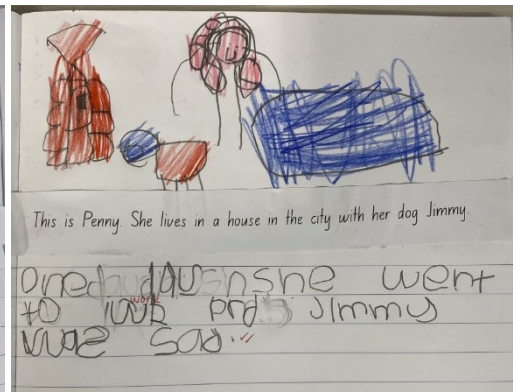 This is Penny. She lives in a house in the city with her dog Jimmy.
One day she went
work
to and Jimmy
was sad.